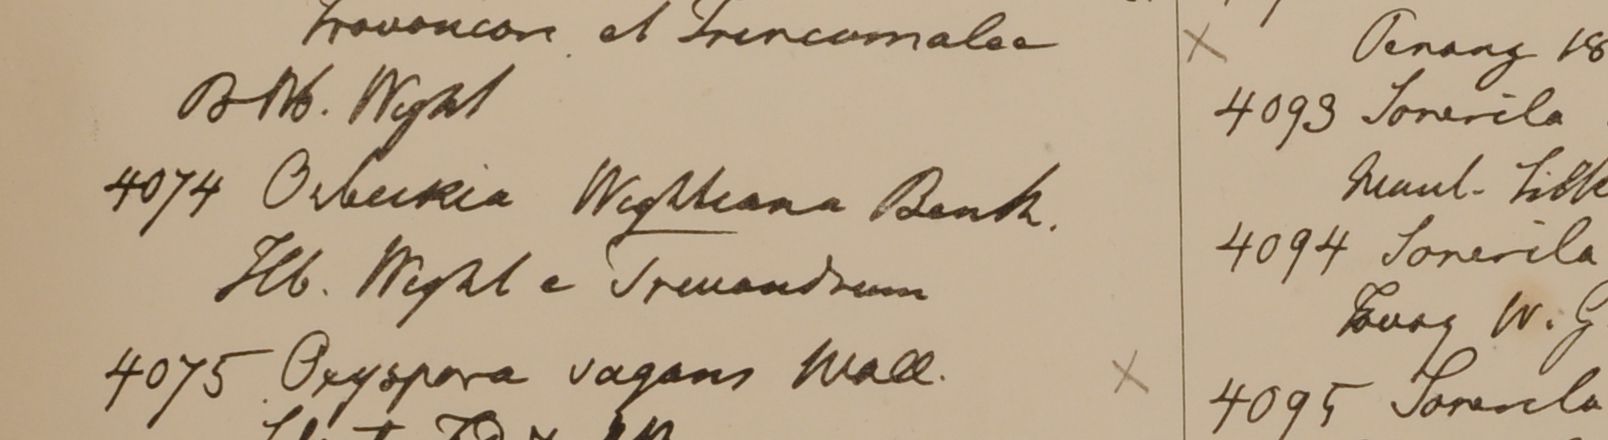 Travancore et Trincomalee
B Hb. Wight
4074 Osbeckia Wightiana Benth.
Hb. Wight e Trevandrum
4075 Oxyspora vagans Wall.
Penang 18
4093 Sonerila
4094 Sonerila
Tavoy W. G.
4095 Sonerila